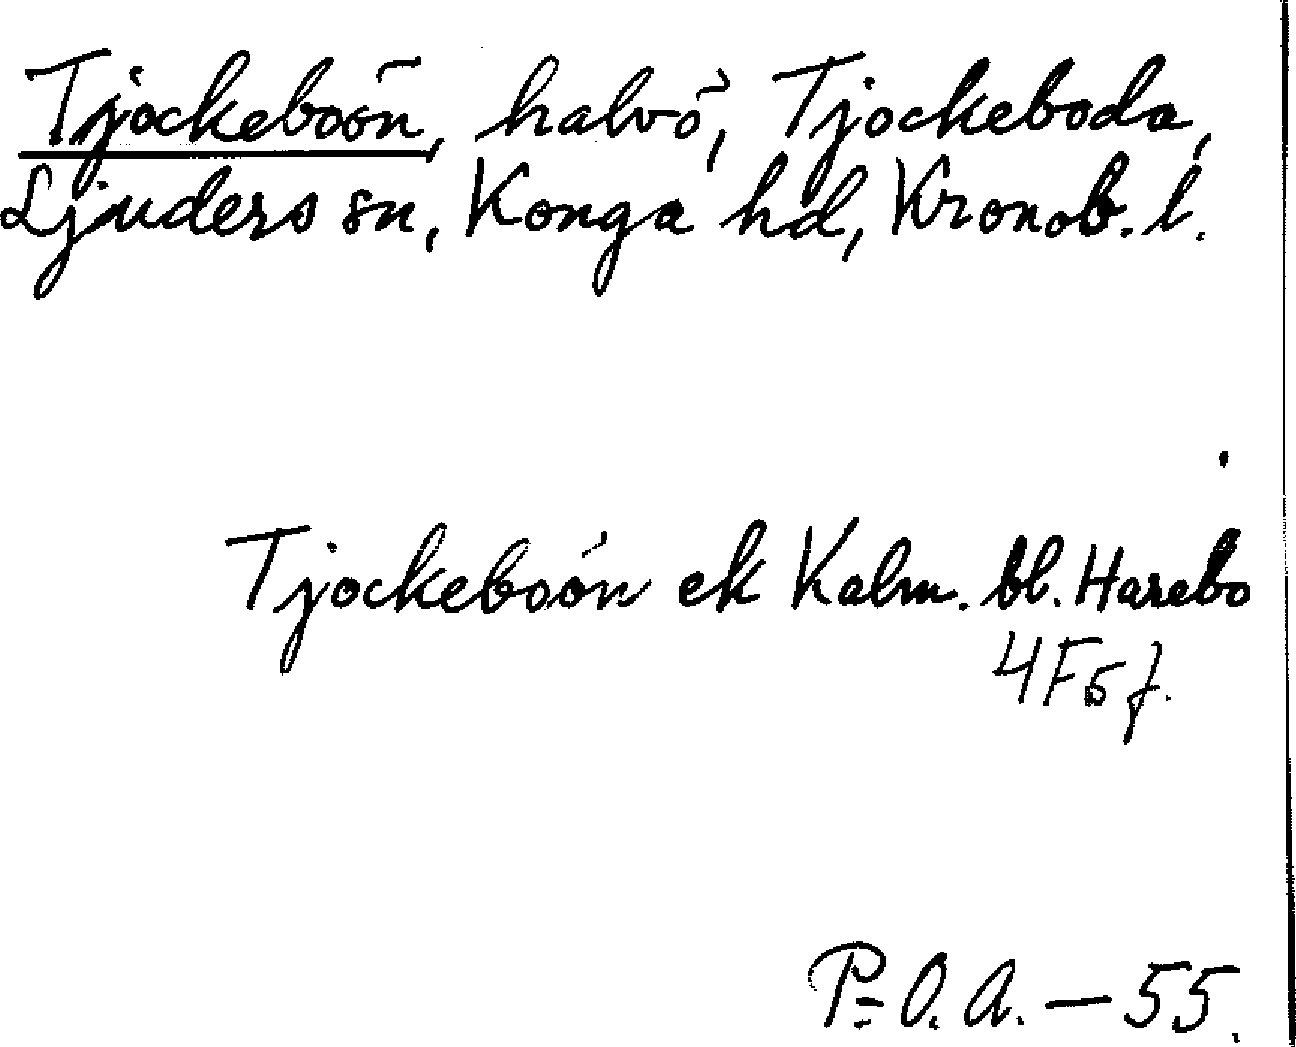 Tjockeboön, halvö, Tjockeboda,
Ljuders sn, Konga hd, Kronob. l.
Tjockeboön ek Kalm. bl. Harebo
4F5f.
P=O.A. — 55.